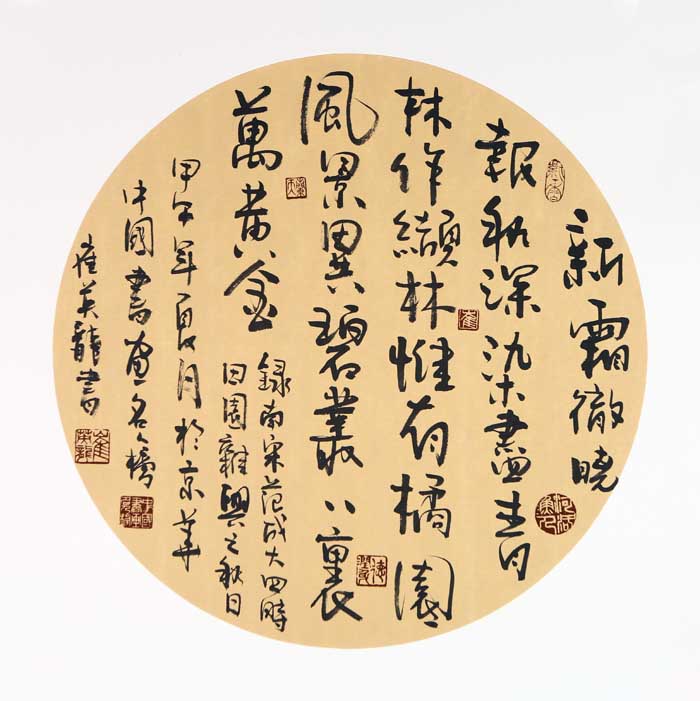 新霜徹曉
報秋深染盡青
林作纈林惟有橘園
風景異碧叢〻裏
萬黄金
録南宋范成大四時
田園雜興之秋日
甲午年夏月於京華
中國書畫名
崔英龍書
崔
崔英龍